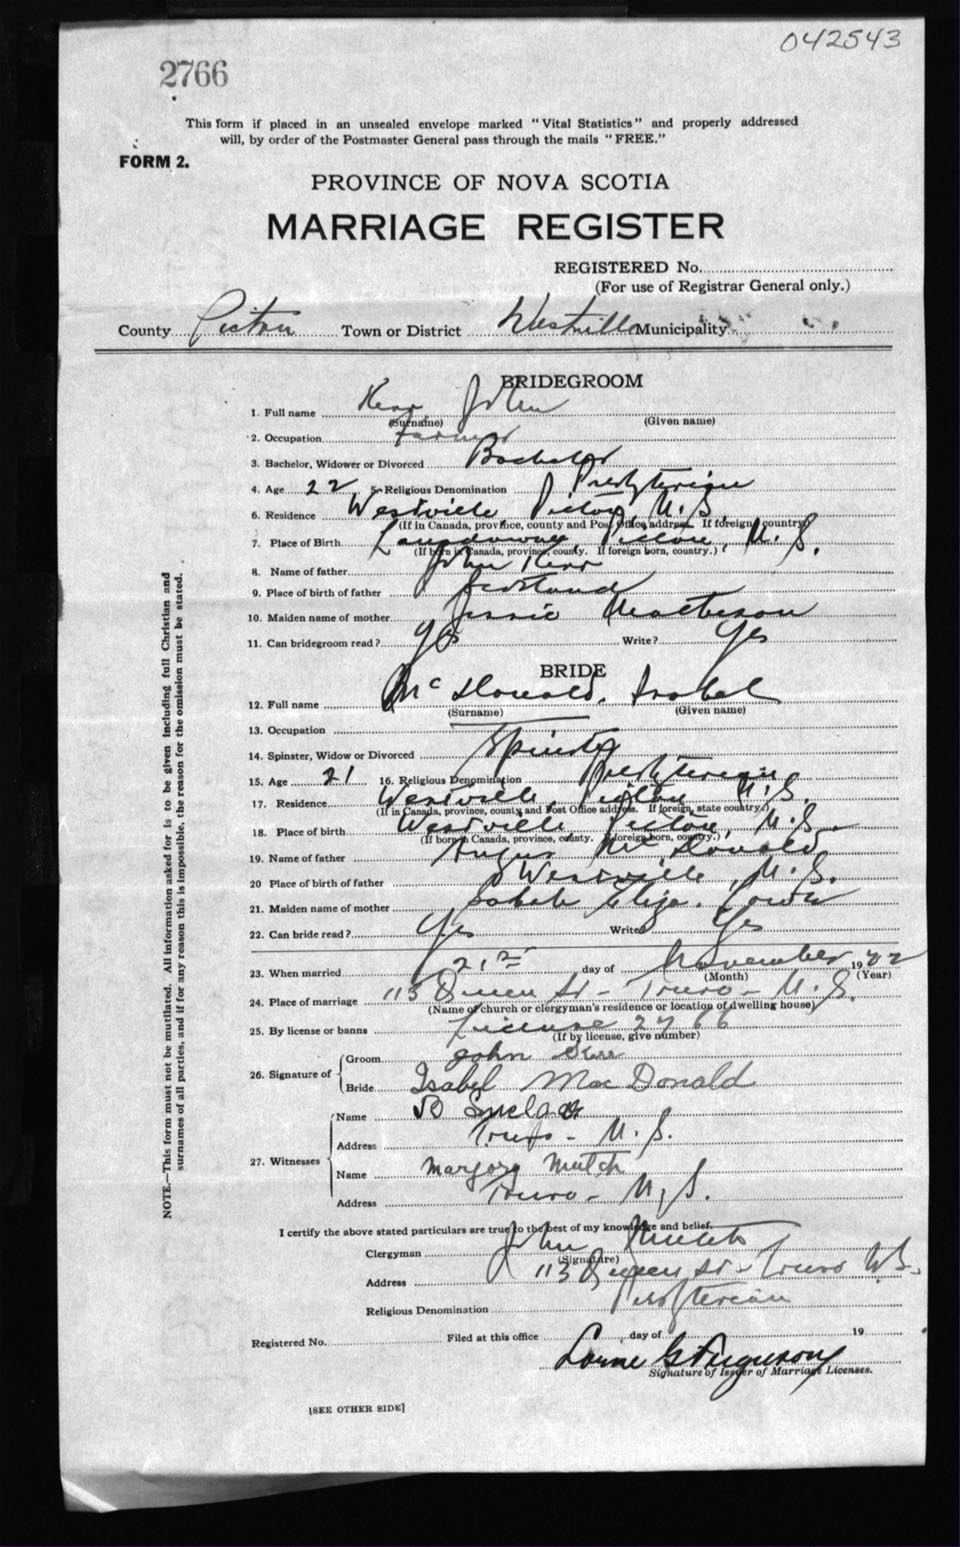 042543
2766
This form if placed in an unsealed envelope marked "Vital Statistics" and properly addressed
will, by order of the Postmaster General pass through the mails "FREE."
FORM 2.
PROVINCE OF NOVA SCOTIA
MARRIAGE REGISTER
REGISTERED No.
(For use of Registrar General only.)
County Pictou Town or District Westville Municipality
BRIDEGROOM
1. Full name Kerr John
(Surname) (Given name)
2. Occupation Farmer
3. Bachelor, Widower or Divorced Bachelor
4. Age 22 5. Religious Denomination Presbyterian
6. Residence Westville Pictou, N.S.
(If in Canada, province, county and Post Office address. If foreign, country)
7. Place of Birth Lansdowne, Pictou, N.S.
(If born in Canada, province, county. If foreign born, country.)
8. Name of father John Kerr
9. Place of birth of father Scotland
10. Maiden name of mother Jessie Matheson
11. Can bridegroom read? Yes Write? Yes
BRIDE
12. Full name McDonald, Isabel
(Surname) (Given name)
13. Occupation
14. Spinster, Widow or Divorced Spinster
15. Age 21 16. Religious Denomination Presbyterian
17. Residence Westville, Pictou N.S.
(If in Canada, province, county, and Post Office address. If foreign, state country.)
18. Place of birth Westville Pictou, N.S.
(If born in Canada, province, county. If foreign born, country.)
19. Name of father Angus McDonald
20 Place of birth of father Westville, N.S.
21. Maiden name of mother Eliza.
22. Can bride read? Yes Write? Yes
23. When married 21st day of November 1922
(Month) (Year)
24. Place of marriage 113 Queen St - Truro - N.S.
(Name of church or clergyman's residence or location of dwelling house)
25. By license or banns License 2766
(If by license, give number)
26. Signature of Groom John Kerr
Bride Isabel MacDonald
27. Witnesses Name
Address Truro - N.S.
Name Margory Mutch
Address Truro - N.S.
I certify the above stated particulars are true to the best of my knowledge and belief.
Clergyman John Mutch
(Signature)
Address 113 Queen St - Truro N.S.
Religious Denomination Presbyterian
Registered No. Filed at this office day of 19
Lorne G Ferguson
Signature of Issuer of Marriage Licenses.
[SEE OTHER SIDE]
NOTE.—This form must not be mutilated. All information asked for is to be given including full Christian and
surnames of all parties, and if for any reason this is impossible, the reason for the omission must be stated.